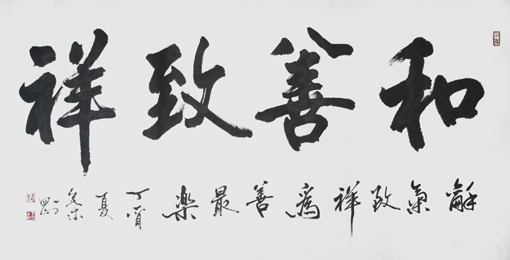 和善致祥
龢氣致祥為善最樂丁酉夏